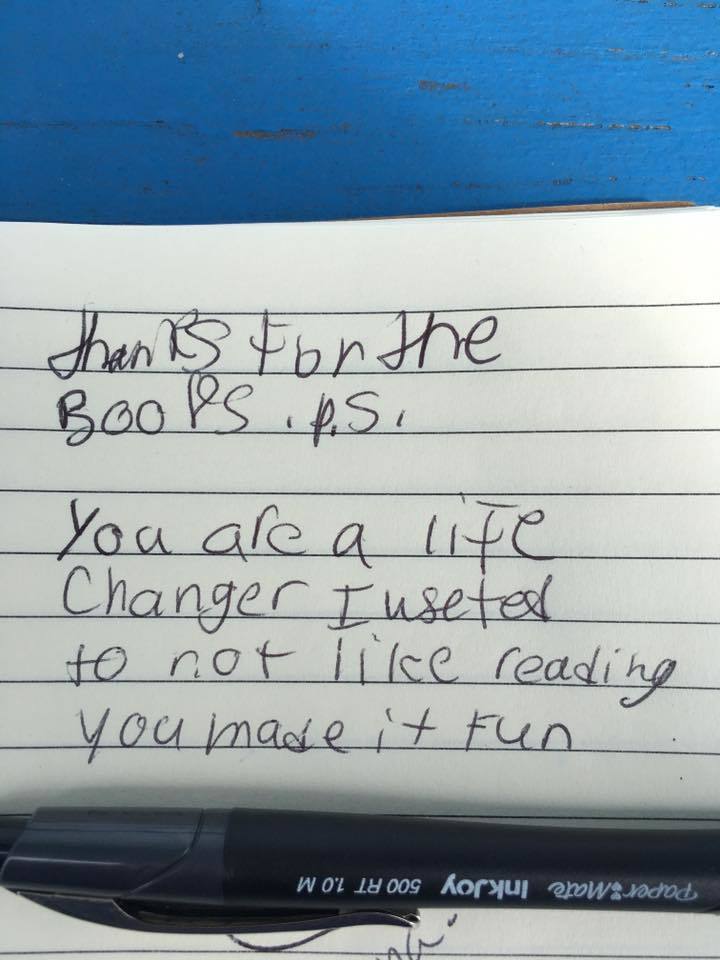 thanks for the
Books . p.s.
you are a life
Changer I useted
to not like reading
you made it fun
Paper Mate InkJoy 500 RT 1.0 M